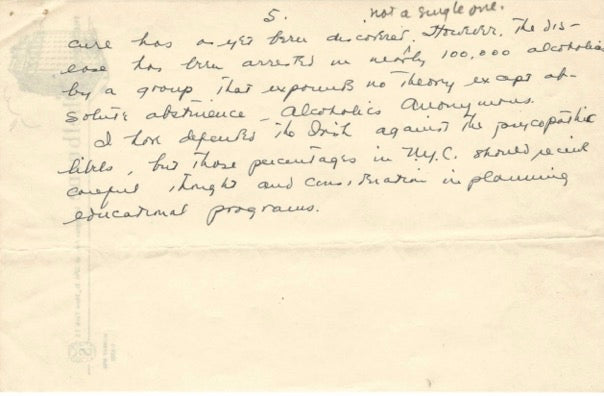 5.
not a single one.
cure has as yet been discovered. However, the dis-
ease has been arrested in nearly 100,000 alcoholics
by a group that expounds no theory except ab-
solute abstinence - Alcoholics Anonymous.
I have defended the Irish against the psycopathic
libels, but those percentages in N.Y.C. should receive
careful thought and consideration in planning
educational programs.